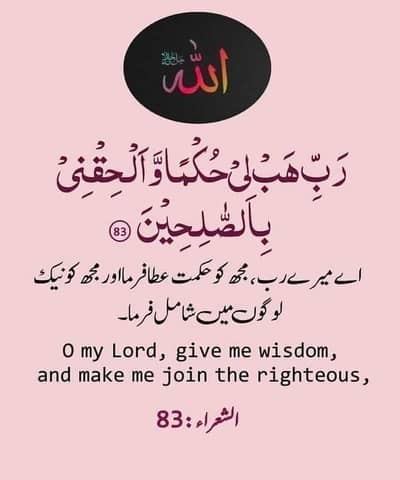 الله ﷻ
رَبِّ هَبْ لِیْ حُكْمًا وَّ اَلْحِقْنِیْ
بِالصّٰلِحِیْنَ 83
اے میرے رب، مجھ کو حکمت عطا فرما اور مجھ کو نیک
لوگوں میں شامل فرما۔
O my Lord, give me wisdom,
and make me join the righteous,
الشعراء :83